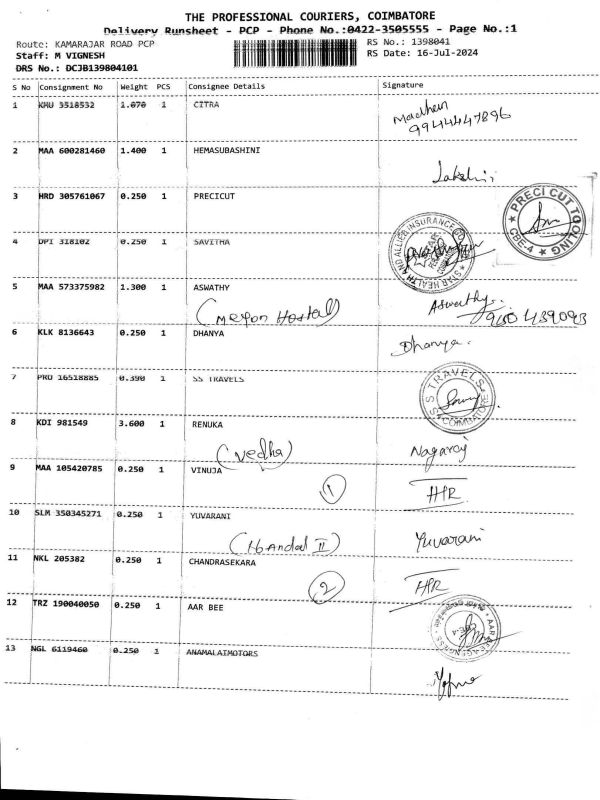 THE PROFESSIONAL COURIERS, COIMBATORE
Delivery Runsheet - PCP - Phone No.:0422-3505555 - Page No.:1
Route: KAMARAJAR ROAD PCP
RS No.: 1398041
Staff: M VIGNESH
RS Date: 16-Jul-2024
DRS No.: DCJB139804101
S No Consignment No Weight PCS Consignee Details Signature
1 KMU 3518532 1.070 1 CITRA
9944447896
2 MAA 600281460 1.400 1 HEMASUBASHINI
3 HRD 305761067 0.250 1 PRECICUT
PRECI CUT TOOLING
CBE-4
4 DPI 318102 0.250 1 SAVITHA
STAR HEALTH AND ALLIED INSURANCE
5 MAA 573375982 1.300 1 ASWATHY
Aswathy.
6 KLK 8136643 0.250 1 DHANYA
Dhanya.
7 PRO 16518885 0.390 1 SS TRAVELS
S S TRAVELS
COIMBATORE
8 KDI 981549 3.600 1 RENUKA
(vedha) Nagaraj
9 MAA 105420785 0.250 1 VINUJA
1
10 SLM 350345271 0.250 1 YUVARANI
Yuvarani
11 NKL 205382 0.250 1 CHANDRASEKARA
2
12 TRZ 190040050 0.250 1 AAR BEE
13 NGL 6119460 0.250 1 ANAMALAIMOTORS